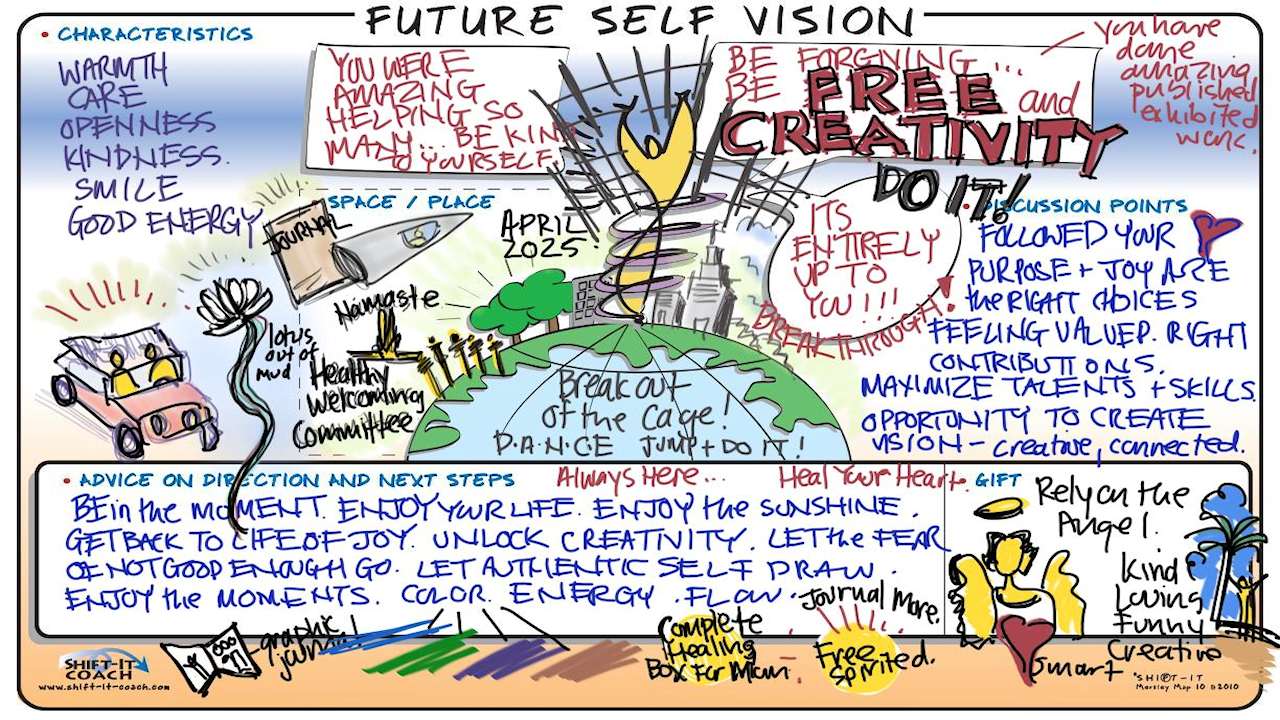 FUTURE SELF VISION
• CHARACTERISTICS
WARMTH
CARE
OPENNESS
KINDNESS.
SMILE
GOOD ENERGY
YOU WERE
AMAZING
HELPING SO
MANY... BE KIND
to YOURSELF.
BE FORGIVING...
BE
FREE
and
CREATIVITY
DO IT!
you have
done
amazing
published
exhibited
work.
SPACE / PLACE
JOURNAL
APRIL
2025
Namaste
lotus
out of
mud
Healthy
Welcoming
Committee
ITS
ENTIRELY
UP TO
YOU!!!
BREAKTHROUGH!
Break out
of the Cage!
D·A·N·C·E JUMP + DO IT!
• DISCUSSION POINTS
FOLLOWED YOUR
PURPOSE + JOY ARE
the RIGHT CHOICES
FEELING VALUED. RIGHT
CONTRIBUTIONS.
MAXIMIZE TALENTS + SKILLS.
OPPORTUNITY TO CREATE
VISION - creative, connected.
• ADVICE ON DIRECTION AND NEXT STEPS
Always Here...
Heal Your Heart.
BE in the moMENT. ENJOY YOUR LIFE. ENJOY the SUNSHINE.
GET BACK TO LIFE OF JOY. UNLOCK CREATIVITY. LET the FEAR
OF NOT GOOD ENOUGH GO. LET AUTHENTIC SELF DRAW.
ENJOY the MOMENTS. COLOR. ENERGY. FLOW.
Journal More.
GIFT
Rely on the
Angel.
Kind
Loving
Funny
Creative
Smart
graphic
Complete
Healing
Box for
Free
Spirited.
SHIFT-IT
COACH
www.shift-it-coach.com
SHIFT-IT